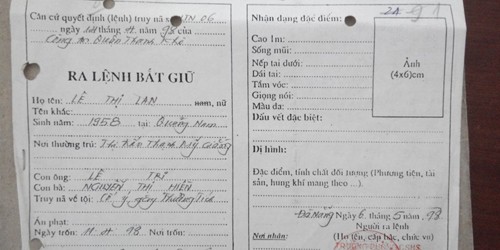 Căn cứ quyết định (lệnh) truy nã số TN 06
ngày 24 tháng 11. năm 98 của
Công an Quận Thanh Khê
RA LỆNH BẮT GIỮ
Họ tên: LÊ THỊ LAN nam, nữ
Tên khác:
Sinh năm: 1958 tại: Quảng Nam
Nơi thường trú: Thanh
Con ông: LÊ TRÍ
Con bà: NGUYỄN THỊ HIỀN
Truy nã về tội: Cố ý gây Thương Tích
Án phạt:
Ngày trốn: 11. 98. Nơi trốn:
2A
Nhận dạng đặc điểm:
Cao 1m:
Sống mũi:
Nếp tai dưới:
Dái tai:
Tầm vóc:
Giọng nói:
Màu da:
Dấu vết đặc biệt:
Ảnh
(4x6)cm
Dị hình:
Đặc điểm, tính chất đối tượng (Phương tiện, tài
sản, hung khí mang theo ...).
Đà Nẵng Ngày 6. tháng 5 năm 98.
Người ra lệnh
Nơi nhận: (Họ tên, cấp bậc, chức vụ)